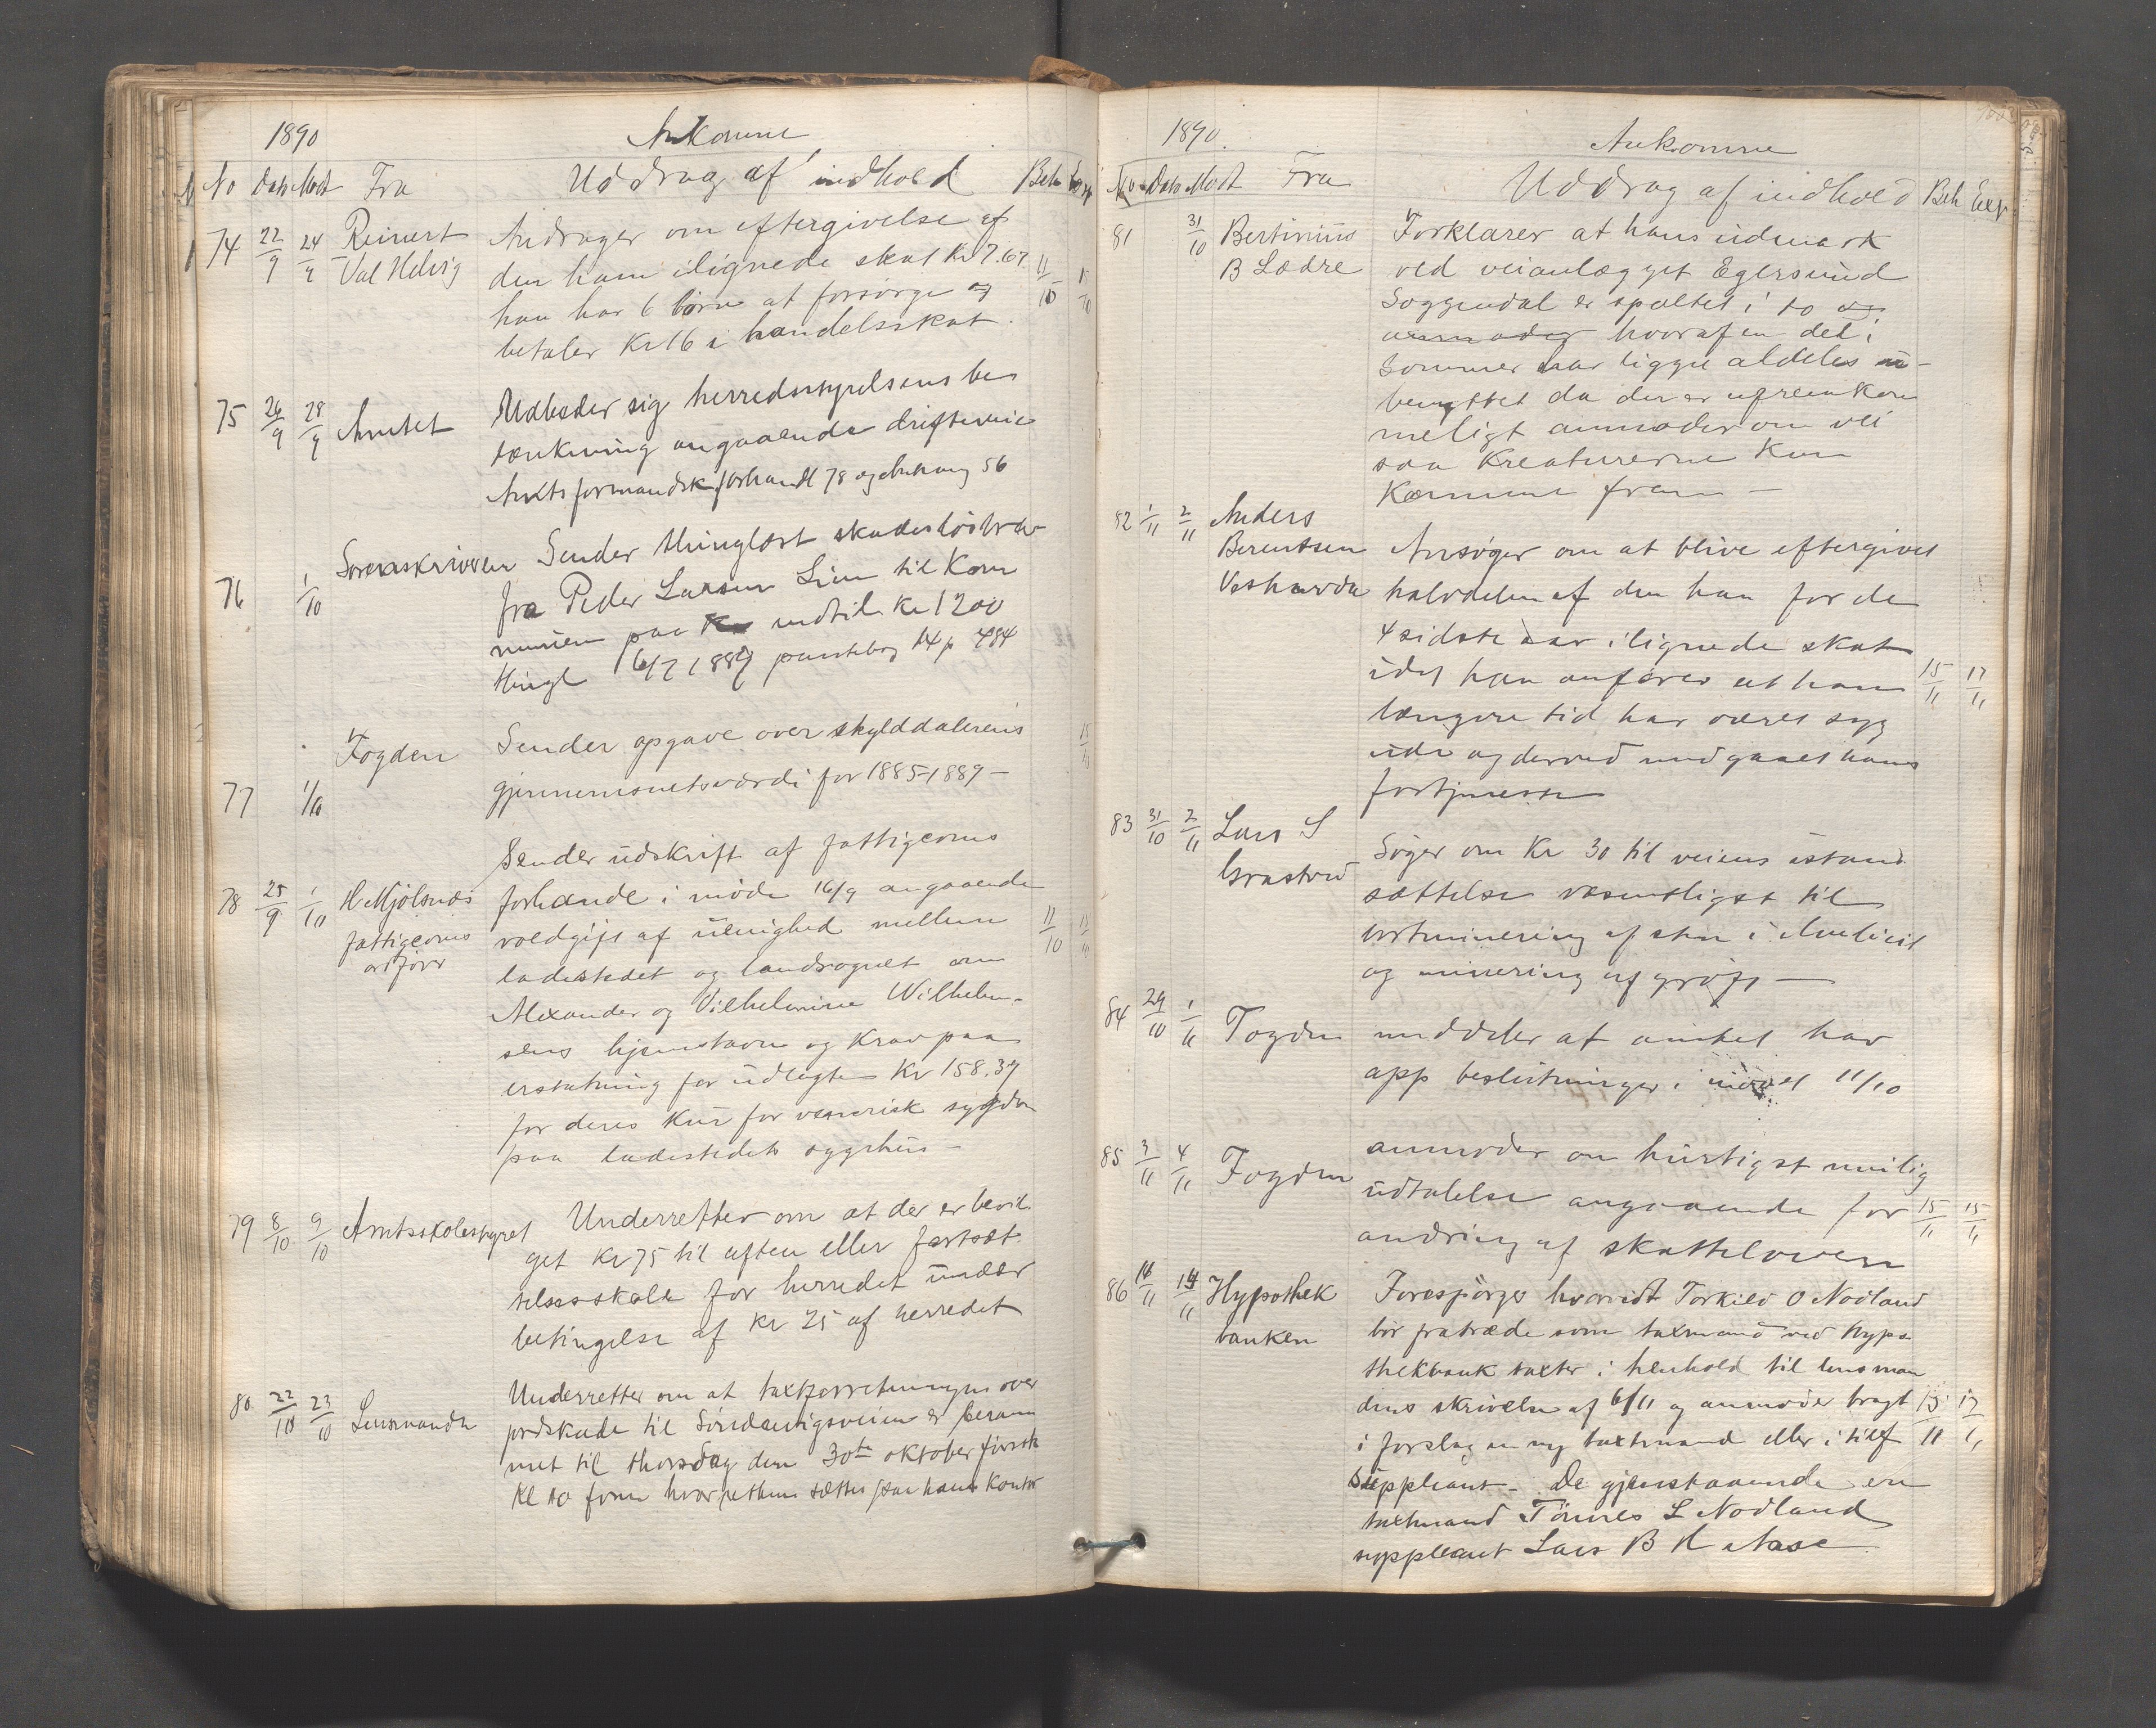 1890 Ankomne
No Dato Modt Fra Uddrag af indhold Beh Exp
74 22/9 24/9 Reinert Andrager om eftergivelse af
Val Helvig den ham ilignede skat Kr 7.67. 11/10
han har 6 börn at forsörge og
betaler Kr 16 i handelsskat.
75 26/9 28/9 Amtet Udbeder sig herredsstyrelsens be
tænkning angaaende
Amtsformandsk forhandl 78 og 56
76 1/10 Sorenskriveren Sender thinglæst skadeslösbrev
fra Peder Larsen Lien til Kom
munen paa indtil Kr 1200
thingl 16/7 1889 pantebog 14 p 484
77 1/10 Fogden Sender opgave over skylddalerens
gjennemsnitsværdi for 1885-1889 –
78 25/9 1/10 H Mjölsnæs Sender udskrift af fattigcoms
fattigcoms forhandl i möde 16/9 angaaende
ordförer voldgift af uenighed mellem 11/10
ladestedet og landsognet om
Alexander og Vilhelmine Wilhelm-
sens hjemstavn og Krav paa
erstatning for udlagte Kr 158.37
for deres Kur for venerisk sygdom
paa ladestedets sygehus –
79 8/10 9/10 Amtsskolestyret Underretter om at der er bevil
get Kr 75 til aften eller fortsæt
telsesskole for herredet under
betingelse af Kr 25 af herredet
80 22/10 23/10 Lensmanden Underretter om at taxtforretningen over
jordskade til veien er beram
met til thorsdag den 30te oktober förstk
Kl 10 form hvor retten sættes paa hans Kontor
1890. Ankomne
No Dato Modt Fra Uddrag af indhold Beh Exp
81 31/10 Bertinius Forklarer at hans udmark
B Lædre ved veianlægget Egersund
Soggendal er spaltet i to og
anmoder hvoraf en del i
sommer har ligget aldeles u-
benyttet da der er ufremkom
meligt anmoder om vei
saa Kreaturerne Kan
Komme frem –
82 1/11 2/11 Anders
Berentsen Ansöger om at blive eftergivet
halvdelen af den han for de
4 sidste aar ilignede skat
idet han anförer at han 15/11 17/11
længere tid har været syg
ude og derved undgaaet hans
fortjeneste
83 31/10 2/11 Lars S
Söger om Kr 30 til veiens istand
sættelse væsentligst til
bortminering af sten i
og minering af gröft –
84 29/10 1/11 Fogden meddeler at amtet har
app beslutninger i mödet 11/10
85 3/11 4/11 Fogden anmoder om hurtigst mulig
udtalelse angaaende for 15/11 15/11
andring af skatteloven
86 14/11 Hypothek Forespörger hvorvidt Torkild O Nodland
banken bör fratræde som taxmand ved Hypo
thekbank taxter i henhold til lensman
dens skrivelse af 6/11 og anmoder bragt 15/11 17/11
i forslag en ny taxtmand eller i tilf
Suppleant – De gjenstaaende er
taxtmand Tönnes L Nodland
suppleant Lars B H Aase